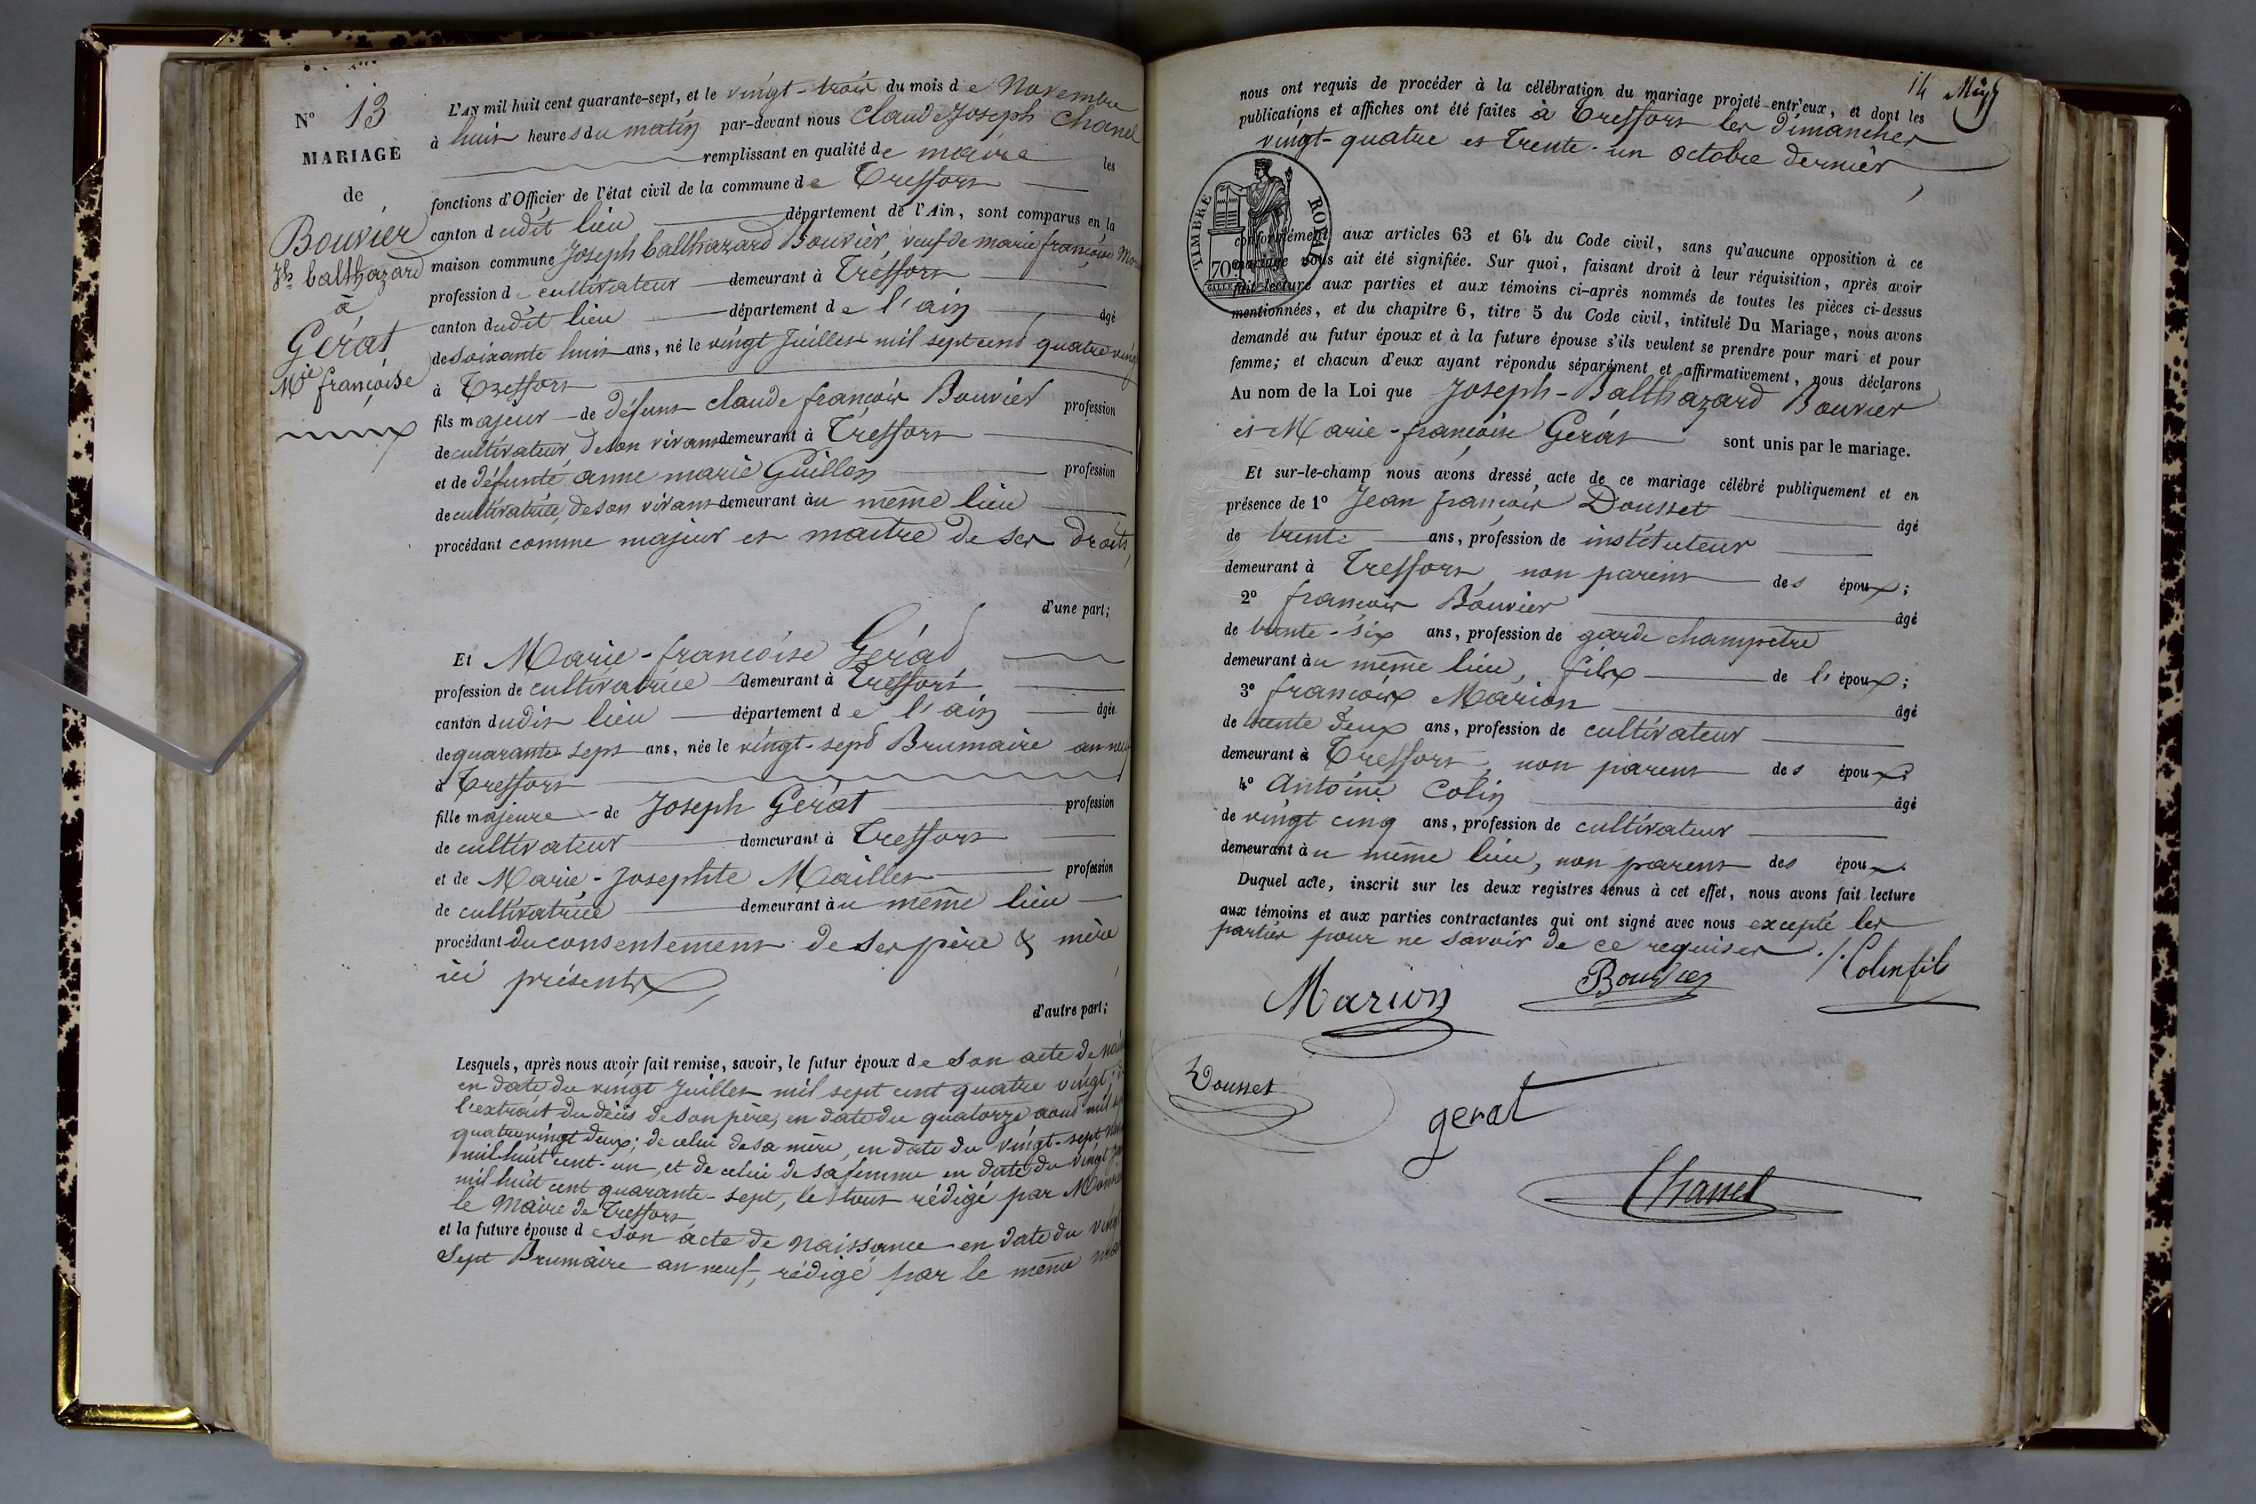 N° 13
MARIAGE
de
Bouvier
Jh balthazard
à
Gérat
Mie françoise
L'AN mil huit cent quarante-sept, et le vingt-trois du mois de Novembre
à huit heures du matin par-devant nous Claude Joseph Chanel
remplissant en qualité de maire les
fonctions d'Officier de l'état civil de la commune de Treffort
canton dudit lieu département de l'Ain, sont comparus en la
maison commune Joseph balthazard Bouvier, veuf de marie françoise
profession de cultivateur demeurant à Treffort
canton dudit lieu département de l'ain âgé
de soixante huit ans, né le vingt Juillet mil sept cent quatre vingt
à Treffort
fils majeur de défunt claude françois Bouvier profession
de cultivateur, de son vivant demeurant à Treffort
et de défunte anne marie Guillon profession
de cultivatrice, de son vivant demeurant au même lieu
procédant comme majeur et maitre de ses droits,
d'une part;
Et Marie-françoise Gérad
profession de cultivatrice demeurant à Treffort
canton dudit lieu département de l'ain âgée
de quarante sept ans, née le vingt-sept Brumaire an neuf
à Treffort
fille majeure de Joseph Gérat profession
de cultivateur demeurant à Treffort
et de Marie-Josephte Maillet profession
de cultivatrice demeurant au même lieu
procédant du consentement de ses père & mère
ici présents
d'autre part;
Lesquels, après nous avoir fait remise, savoir, le futur époux de son acte de
en date du vingt Juillet mil sept cent quatre vingt,
l'extrait du décès de son père, en date du quatorze aout mil
quatre vingt deux; de celui de sa mère, en date du vingt-sept
mil huit cent-un, et de celui de sa femme en date du vingt
mil huit cent quarante-sept, le tout rédigé par
le Maire de Treffort
et la future épouse de son acte de naissance en date du vingt
Sept Brumaire an neuf, rédigé par le même
14
nous ont requis de procéder à la célébration du mariage projeté entr'eux, et dont les
publications et affiches ont été faites à Treffort les dimanches
vingt-quatre et trente-un octobre dernier,
TIMBRE ROYAL
70c
conformément aux articles 63 et 64 du Code civil, sans qu'aucune opposition à ce
mariage nous ait été signifiée. Sur quoi, faisant droit à leur réquisition, après avoir
fait lecture aux parties et aux témoins ci-après nommés de toutes les pièces ci-dessus
mentionnées, et du chapitre 6, titre 5 du Code civil, intitulé Du Mariage, nous avons
demandé au futur époux et à la future épouse s'ils veulent se prendre pour mari et pour
femme; et chacun d'eux ayant répondu séparément et affirmativement, nous déclarons
Au nom de la Loi que Joseph-Balthazard Bouvier
et Marie-françoise Gérat sont unis par le mariage.
Et sur-le-champ nous avons dressé acte de ce mariage célébré publiquement et en
présence de 1° Jean françois Dousset âgé
de trente ans, profession de instituteur
demeurant à Treffort, non parent des époux;
2° françois Bouvier âgé
de trente-six ans, profession de garde champêtre
demeurant au même lieu, fils de l'époux;
3° françois Marion âgé
de trente deux ans, profession de cultivateur
demeurant à Treffort, non parent des époux;
4° Antoine Colin âgé
de vingt cinq ans, profession de cultivateur
demeurant au même lieu, non parent des époux.
Duquel acte, inscrit sur les deux registres tenus à cet effet, nous avons fait lecture
aux témoins et aux parties contractantes qui ont signé avec nous excepté les
parties pour ne savoir de ce requises ./.
Marion Bouvier Colin fils
Dousset
gerat
Chanel